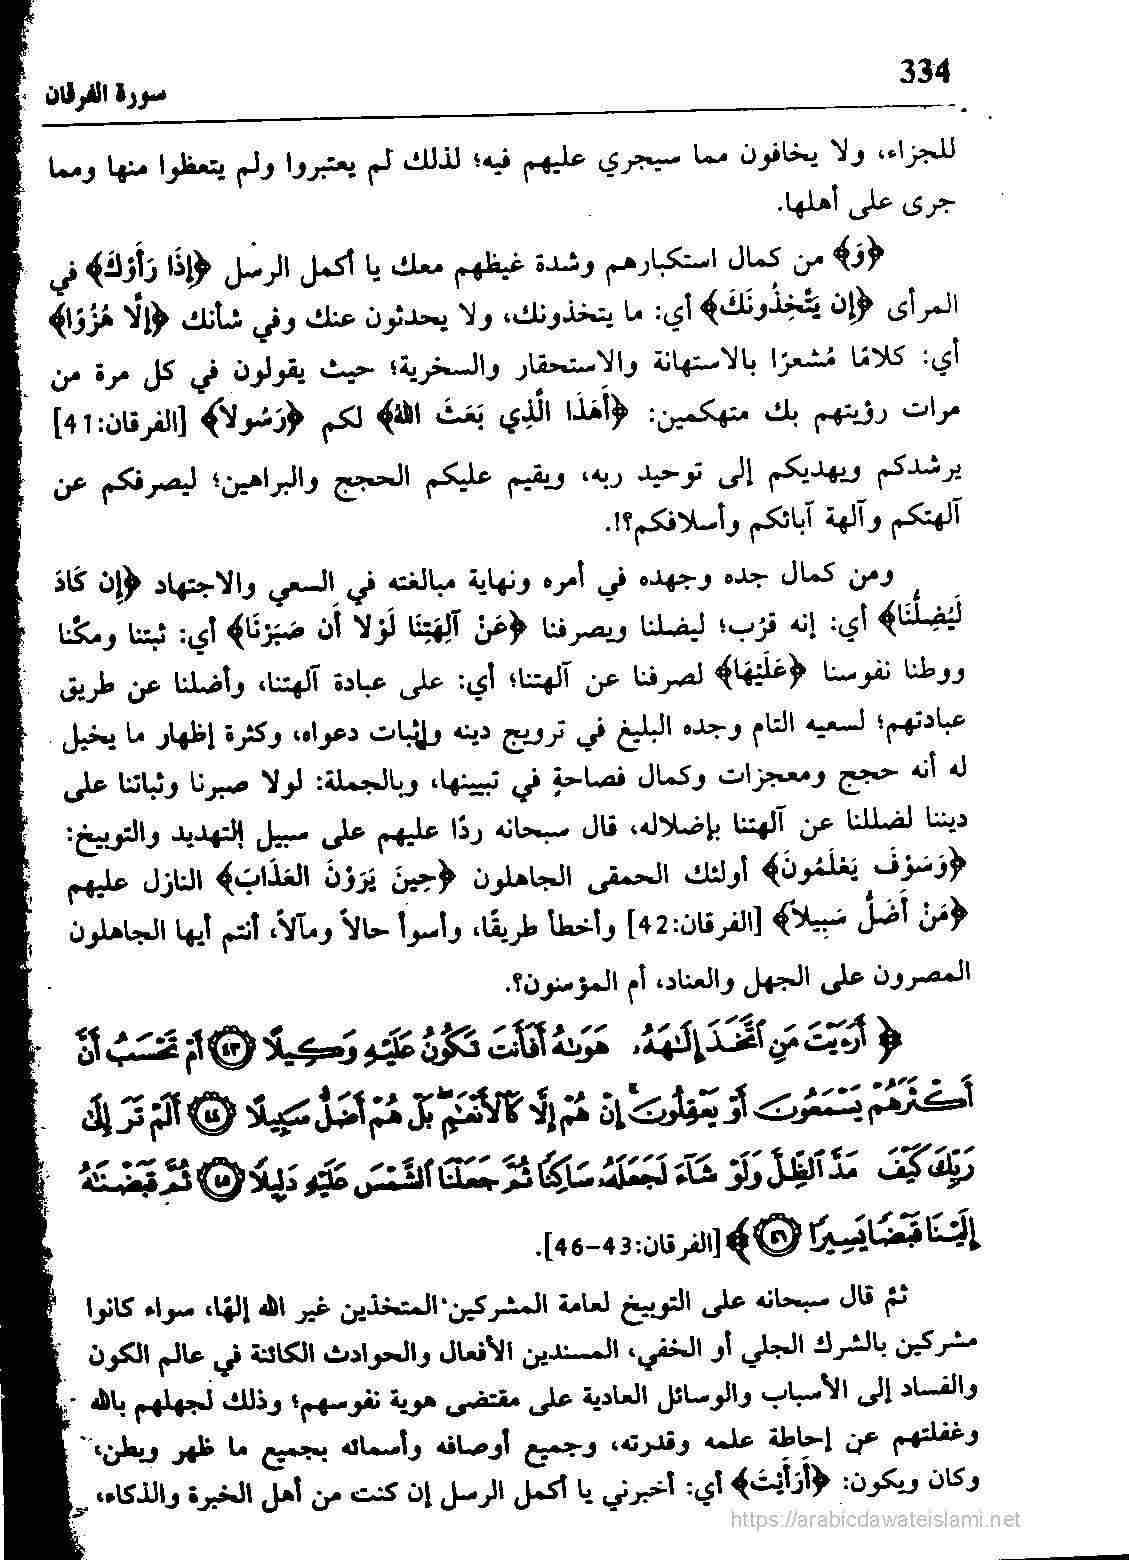 334
سورة الفرقان
للجزاء، ولا يخافون مما سيجري عليهم فيه؛ لذلك لم يعتبروا ولم يتعظوا منها ومما
جرى على أهلها.
﴿وَ﴾ من كمال استكبارهم وشدة غيظهم معك يا أكمل الرسل ﴿إِذَا رَأَوْكَ﴾ في
المرأى ﴿إِن يَتَّخِذُونَكَ﴾ أي: ما يتخذونك، ولا يحدثون عنك وفي شأنك ﴿إِلَّا هُزُوًا﴾
أي: كلامًا مُشعرًا بالاستهانة والاستحقار والسخرية؛ حيث يقولون في كل مرة من
مرات رؤيتهم بك متهكمين: ﴿أَهَذَا الَّذِي بَعَثَ اللهُ﴾ لكم ﴿رَسُولاً﴾ [الفرقان:41]
يرشدكم ويهديكم إلى توحيد ربه، ويقيم عليكم الحجج والبراهين؛ ليصرفكم عن
آلهتكم وآلهة آبائكم وأسلافكم؟!.
ومن كمال جده وجهده في أمره ونهاية مبالغته في السعي والاجتهاد ﴿إِن كَادَ
لَيُضِلُّنَا﴾ أي: إنه قرُب؛ ليضلنا ويصرفنا ﴿عَنْ آلِهَتِنَا لَوْلا أَن صَبَرْنَا﴾ أي: ثبتنا ومكّنا
ووطنا نفوسنا ﴿عَلَيْهَا﴾ لصرفنا عن آلهتنا؛ أي: على عبادة آلهتنا، وأضلنا عن طريق
عبادتهم؛ لسعيه التام وجده البليغ في ترويج دينه وإثبات دعواه، وكثرة إظهار ما يخيل
له أنه حجج ومعجزات وكمال فصاحةٍ في تبيينها، وبالجملة: لولا صبرنا وثباتنا على
ديننا لضللنا عن آلهتنا بإضلاله، قال سبحانه ردًا عليهم على سبيل التهديد والتوبيخ:
﴿وَسَوْفَ يَعْلَمُونَ﴾ أولئك الحمقى الجاهلون ﴿حِينَ يَرَوْنَ العَذَابَ﴾ النازل عليهم
﴿مَنْ أَضَلُّ سَبِيلاً﴾ [الفرقان:42] وأخطأ طريقًا، وأسوأ حالاً ومآلاً، أنتم أيها الجاهلون
المصرون على الجهل والعناد، أم المؤمنون؟.
﴿ أَرَءَيْتَ مَنِ ٱتَّخَذَ إِلَٰهَهُۥ هَوَىٰهُ أَفَأَنتَ تَكُونُ عَلَيْهِ وَكِيلًا ۝٤٣ أَمْ تَحْسَبُ أَنَّ
أَكْثَرَهُمْ يَسْمَعُونَ أَوْ يَعْقِلُونَ ۚ إِنْ هُمْ إِلَّا كَٱلْأَنْعَٰمِ ۖ بَلْ هُمْ أَضَلُّ سَبِيلًا ۝٤٤ أَلَمْ تَرَ إِلَىٰ
رَبِّكَ كَيْفَ مَدَّ ٱلظِّلَّ وَلَوْ شَآءَ لَجَعَلَهُۥ سَاكِنًا ثُمَّ جَعَلْنَا ٱلشَّمْسَ عَلَيْهِ دَلِيلًا ۝٤٥ ثُمَّ قَبَضْنَٰهُ
إِلَيْنَا قَبْضًا يَسِيرًا ۝٤٦ ﴾ [الفرقان:43-46].
ثمّ قال سبحانه على التوبيخ لعامة المشركين المتخذين غير الله إلهًا، سواء كانوا
مشركين بالشرك الجلي أو الخفي، المسندين الأفعال والحوادث الكائنة في عالم الكون
والفساد إلى الأسباب والوسائل العادية على مقتضى هوية نفوسهم؛ وذلك لجهلهم بالله
وغفلتهم عن إحاطة علمه وقدرته، وجميع أوصافه وأسمائه بجميع ما ظهر وبطن،
وكان ويكون: ﴿أَرَأَيْتَ﴾ أي: أخبرني يا أكمل الرسل إن كنت من أهل الخبرة والذكاء،
https://arabicdawateislami.net